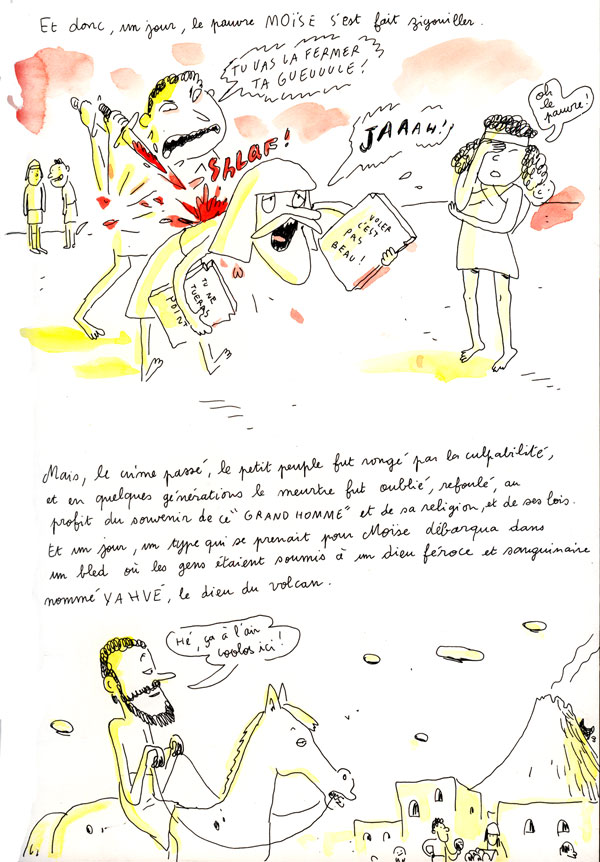 Et donc, un jour, le pauvre MOÏSE s'est fait zigouiller.
TU VAS LA FERMER
TA GUEUUULE !
SHLAF !
JAAAH !
oh
le
pauvre !
VOLER
C'EST
PAS
BEAU !
TU NE
TUERAS
POINT
Mais, le crime passé, le petit peuple fut rongé par la culpabilité,
et en quelques générations le meurtre fut oublié, refoulé, au
profit du souvenir de ce "GRAND HOMME" et de sa religion, et de ses lois.
Et un jour, un type qui se prenait pour Moïse débarqua dans
un bled où les gens étaient soumis à un dieu féroce et sanguinaire
nommé YAHVÉ, le dieu du volcan.
Hé, ça à l'air
coolos ici !